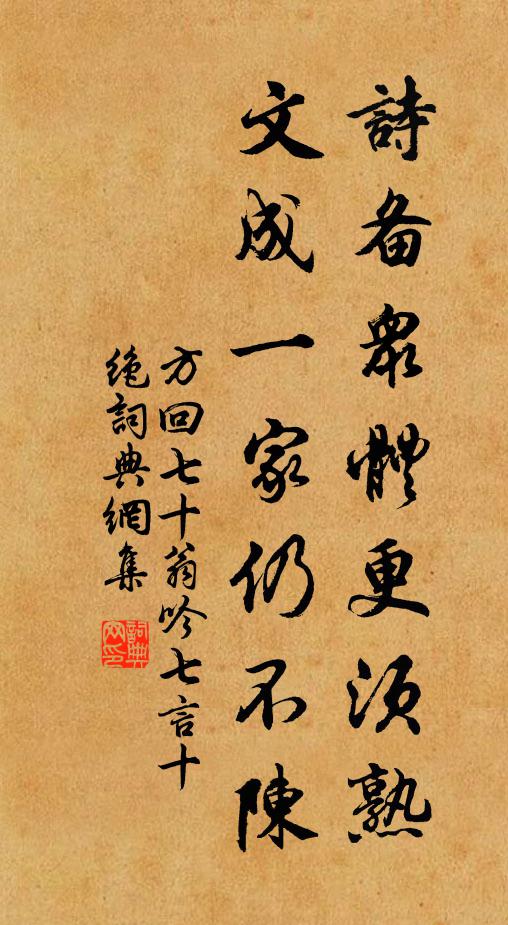 詩备眾體更須熟
文成一家仍不陳
方回七十翁吟七言十
絶詞典網集
詞典
网印